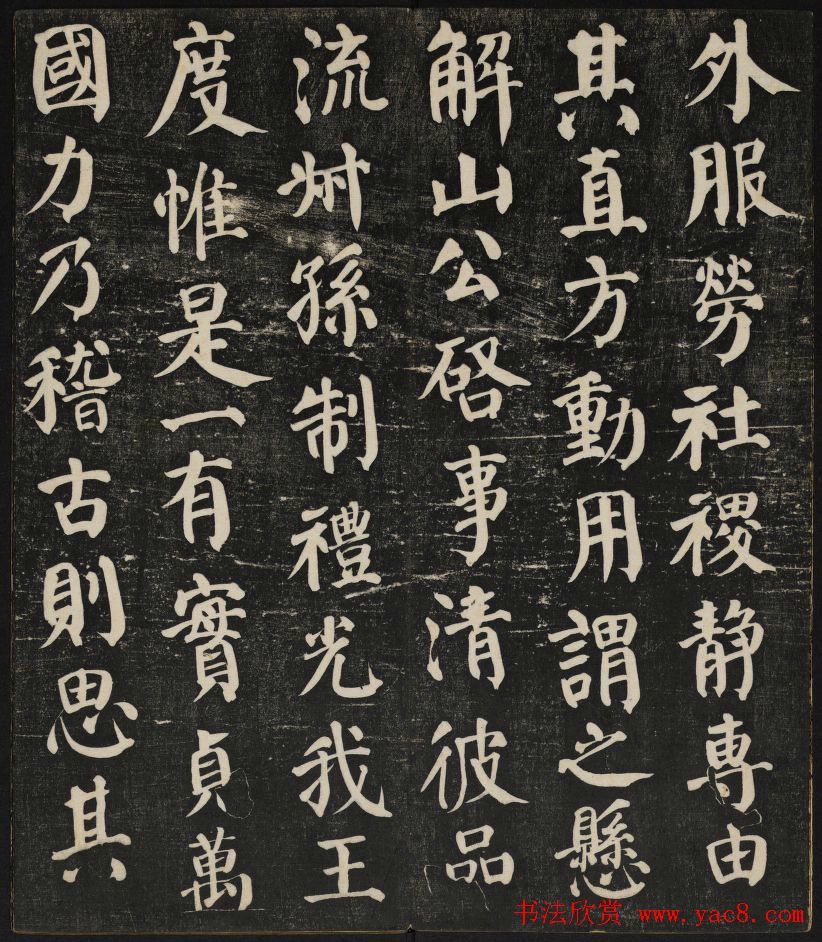 外服勞社稷静專由
其直方動用謂之懸
解山公啓事清彼品
流州孫制禮光我王
度惟是一有實貞萬
國力乃稽古則思其
书法欣赏 www.yac8.com